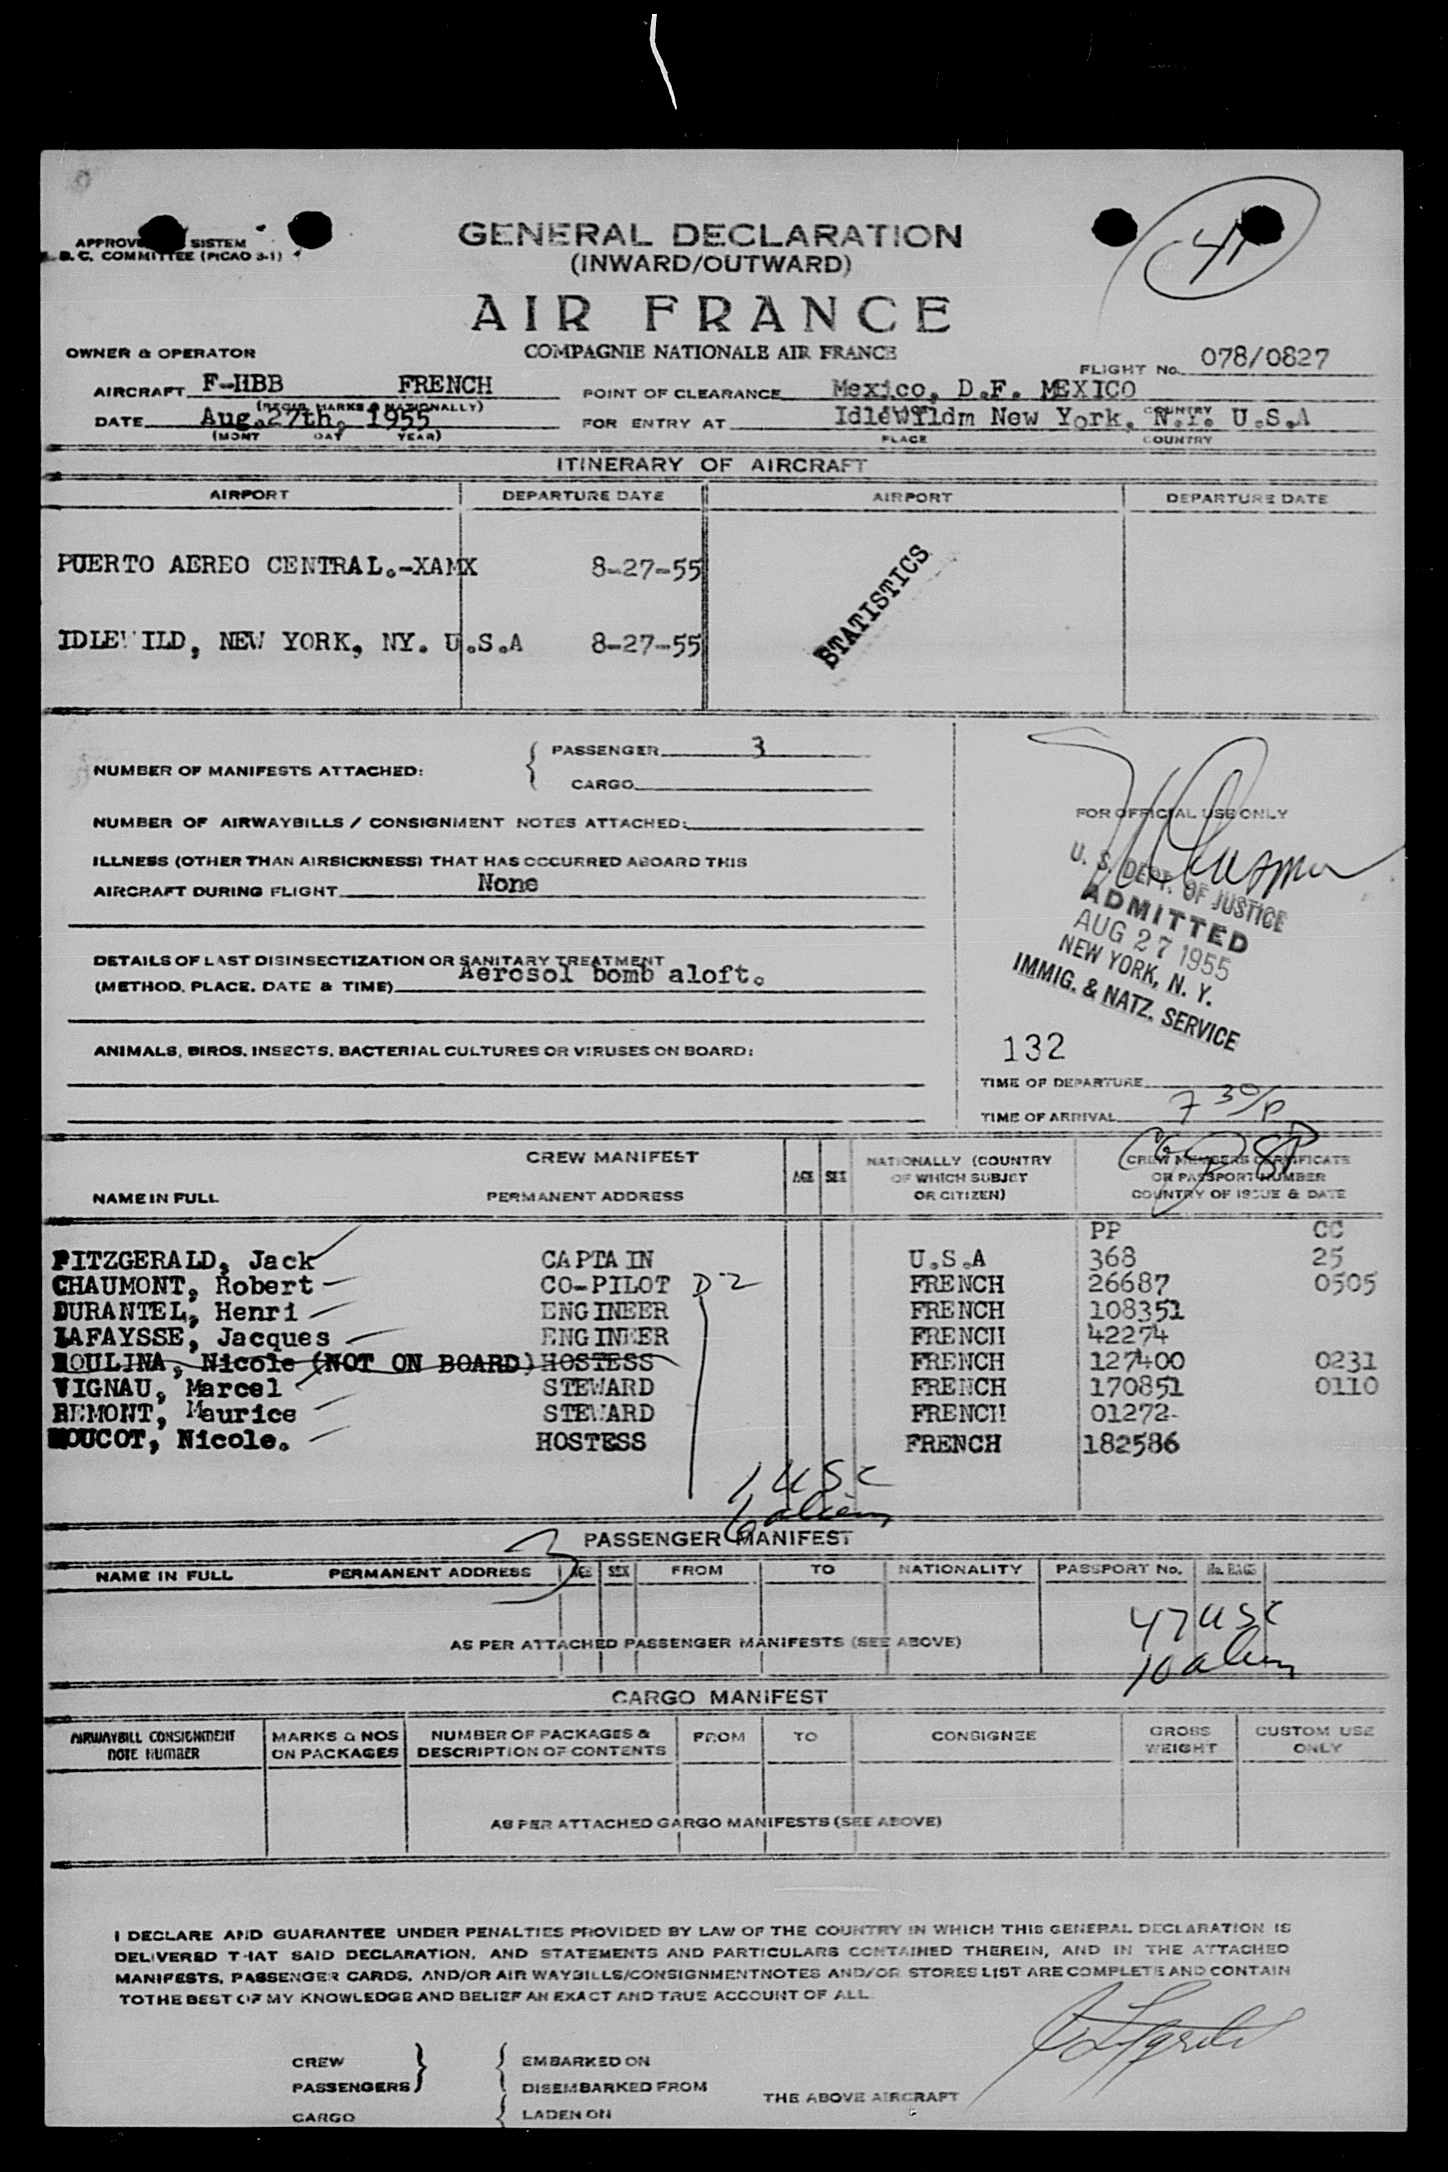 41
GENERAL DECLARATION
(INWARD/OUTWARD)
SISTEM
COMMITTEE (PICAO 3-1)
AIR FRANCE
OWNER & OPERATOR
COMPAGNIE NATIONALE AIR FRANCE
FLIGHT No. 078/0827
AIRCRAFT F-HBB FRENCH
(REGIS. MARKS & NATIONALLY)
POINT OF CLEARANCE Mexico, D.F. MEXICO
DATE Aug.27th, 1955
(MONT DAY YEAR)
FOR ENTRY AT Idlewildm New York, N.Y. U.S.A
COUNTRY
PLACE COUNTRY
ITINERARY OF AIRCRAFT
AIRPORT DEPARTURE DATE AIRPORT DEPARTURE DATE
PUERTO AEREO CENTRAL.-XAMX 8-27-55
STATISTICS
IDLEWILD, NEW YORK, NY. U.S.A 8-27-55
NUMBER OF MANIFESTS ATTACHED:
PASSENGER 3
CARGO
FOR OFFICIAL USE ONLY
NUMBER OF AIRWAYBILLS / CONSIGNMENT NOTES ATTACHED:
ILLNESS (OTHER THAN AIRSICKNESS) THAT HAS OCCURRED ABOARD THIS
AIRCRAFT DURING FLIGHT None
U. S. DEPT. OF JUSTICE
ADMITTED
AUG 27 1955
NEW YORK, N. Y.
IMMIG. & NATZ. SERVICE
DETAILS OF LAST DISINSECTIZATION OR SANITARY TREATMENT
(METHOD, PLACE, DATE & TIME) Aerosol bomb aloft.
ANIMALS, BIRDS, INSECTS, BACTERIAL CULTURES OR VIRUSES ON BOARD:
132
TIME OF DEPARTURE
TIME OF ARRIVAL 7 30/P
CREW MANIFEST
NAME IN FULL PERMANENT ADDRESS
AGE SEX
NATIONALLY (COUNTRY
OF WHICH SUBJET
OR CITIZEN)
CREW MEMBERS CERTIFICATE
OR PASSPORT NUMBER
COUNTRY OF ISSUE & DATE
PP CC
FITZGERALD, Jack CAPTAIN U.S.A 368 25
CHAUMONT, Robert CO-PILOT D-2 FRENCH 26687 0505
DURANTEL, Henri ENGINEER FRENCH 108351
LAFAYSSE, Jacques ENGINEER FRENCH 42274
MOULINA, Nicole (NOT ON BOARD) HOSTESS FRENCH 127400 0231
VIGNAU, Marcel STEWARD FRENCH 170851 0110
REMONT, Maurice STEWARD FRENCH 01272-
MOUCOT, Nicole. HOSTESS FRENCH 182586
1 USC
6 alien
PASSENGER MANIFEST
3
NAME IN FULL PERMANENT ADDRESS AGE SEX FROM TO NATIONALITY PASSPORT No. No. BAGS
47 USC
10 alien
AS PER ATTACHED PASSENGER MANIFESTS (SEE ABOVE)
CARGO MANIFEST
AIRWAYBILL CONSIGNMENT
NOTE NUMBER
MARKS & NOS
ON PACKAGES
NUMBER OF PACKAGES &
DESCRIPTION OF CONTENTS
FROM TO CONSIGNEE
GROSS
WEIGHT
CUSTOM USE
ONLY
AS PER ATTACHED CARGO MANIFESTS (SEE ABOVE)
I DECLARE AND GUARANTEE UNDER PENALTIES PROVIDED BY LAW OF THE COUNTRY IN WHICH THIS GENERAL DECLARATION IS
DELIVERED THAT SAID DECLARATION, AND STATEMENTS AND PARTICULARS CONTAINED THEREIN, AND IN THE ATTACHED
MANIFESTS, PASSENGER CARDS, AND/OR AIR WAYBILLS/CONSIGNMENTNOTES AND/OR STORES LIST ARE COMPLETE AND CONTAIN
TOTHE BEST OF MY KNOWLEDGE AND BELIEF AN EXACT AND TRUE ACCOUNT OF ALL
CREW
PASSENGERS
CARGO
EMBARKED ON
DISEMBARKED FROM
LADEN ON
THE ABOVE AIRCRAFT